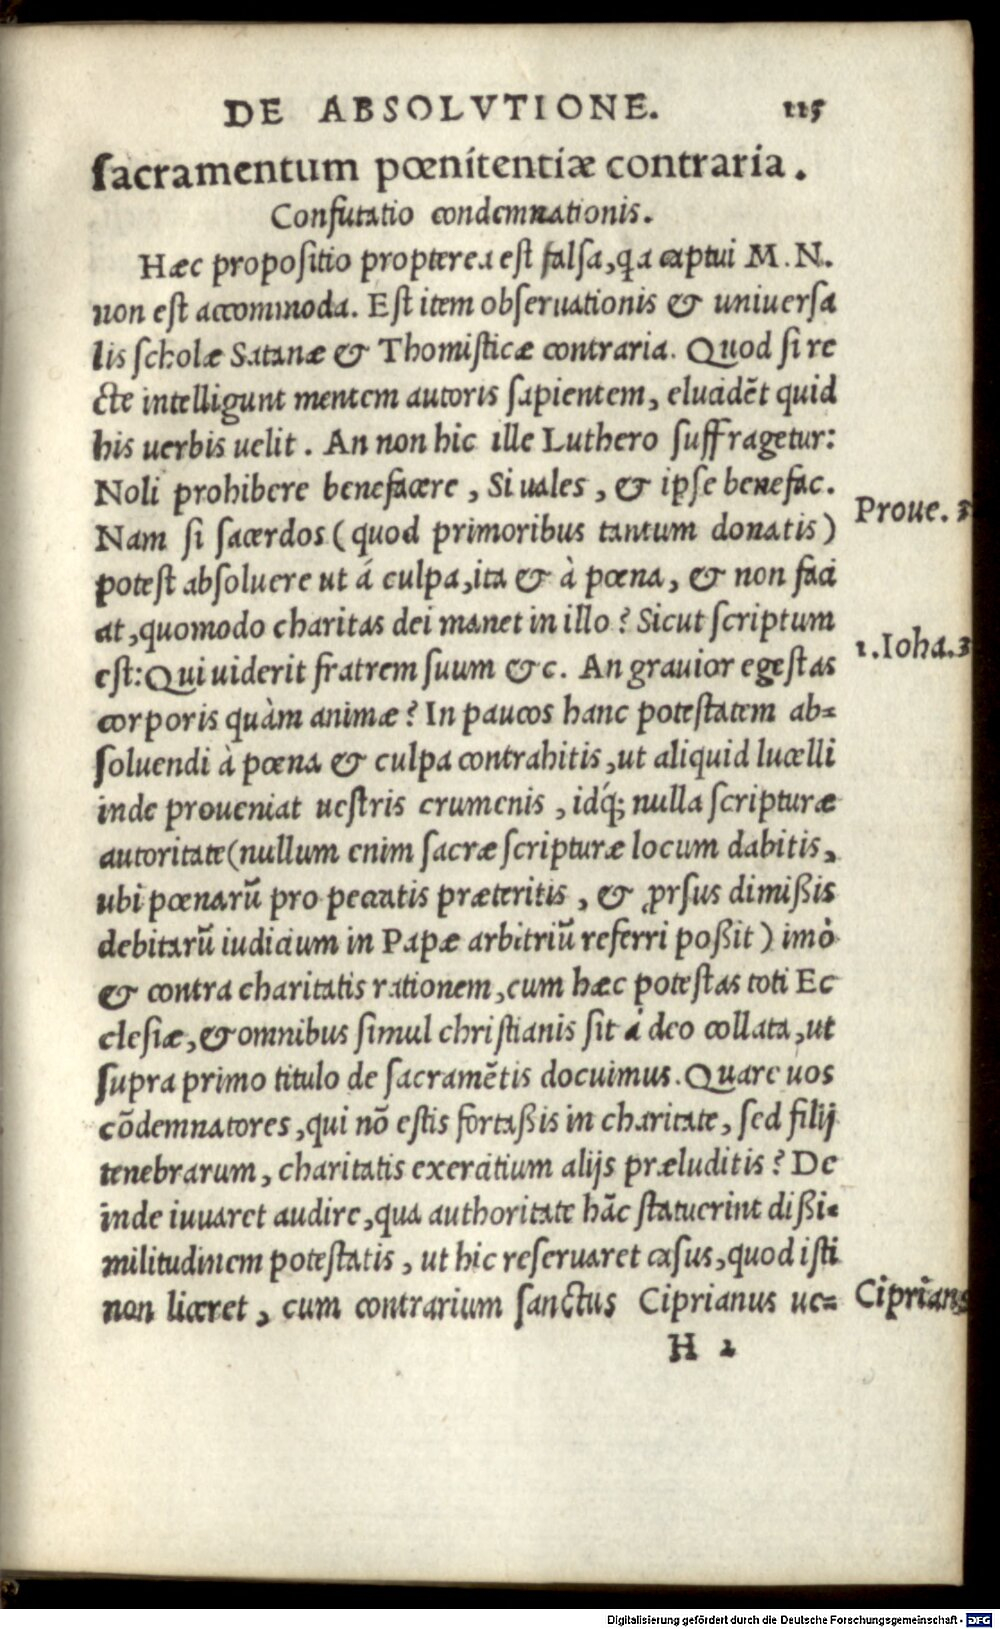 DE ABSOLVTIONE. 115
sacramentum pœnitentiæ contraria.
Confutatio condemnationis.
Hæc propositio propterea est falsa, qa captui M. N.
non est accommoda. Est item obseruationis & uniuersa
lis scholæ Satanæ & Thomisticæ contraria. Quod si re
cte intelligunt mentem autoris sapientem, elucidēt quid
his uerbis uelit. An non hic ille Luthero suffragetur:
Noli prohibere benefacere, Si uales, & ipse benefac.
Proue. 3
Nam si sacerdos (quod primoribus tantum donatis)
potest absoluere ut á culpa, ita & à pœna, & non faci
at, quomodo charitas dei manet in illo? Sicut scriptum
1. Ioha. 3
est: Qui uiderit fratrem suum &c. An grauior egestas
corporis quàm animæ? In paucos hanc potestatem ab=
soluendi à pœna & culpa contrahitis, ut aliquid lucelli
inde proueniat uestris crumenis, idq́; nulla scripturæ
autoritate (nullum enim sacræ scripturæ locum dabitis,
ubi pœnarū pro peccatis præteritis, & ꝓrsus dimißis
debitarū iudicium in Papæ arbitriū referri poßit) imò
& contra charitatis rationem, cum hæc potestas toti Ec
clesiæ, & omnibus simul christianis sit á deo collata, ut
supra primo titulo de sacramētis docuimus. Quare uos
cōdemnatores, qui nō estis fortaßis in charitate, sed filij
tenebrarum, charitatis exercitium alijs præluditis? De
inde iuuaret audire, qua authoritate hāc statuerint dißi=
militudinem potestatis, ut hic reseruaret casus, quod isti
non liceret, cum contrarium sanctus Ciprianus ue=
Ciprian9
H 2
Digitalisierung gefördert durch die Deutsche Forschungsgemeinschaft - DFG